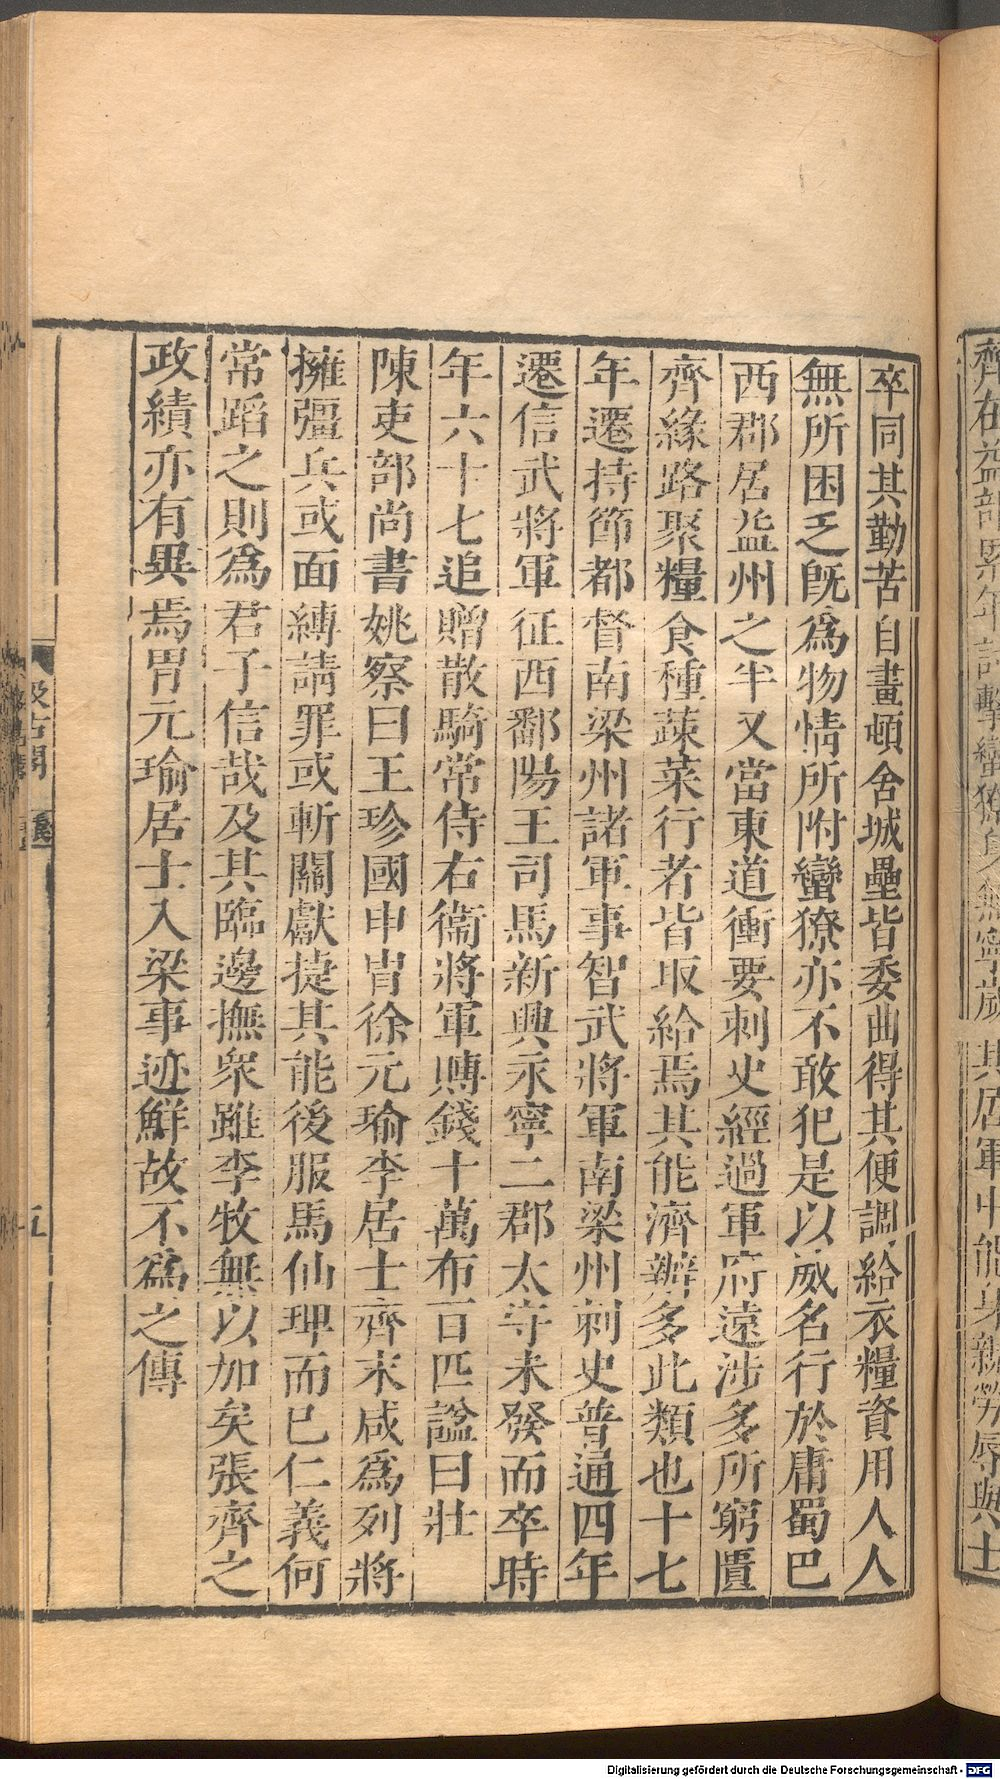 齊在益部累年討擊蠻獠身無寧歲其居軍中能身親勞辱與士
卒同其勤苦自畫頓舍城壘皆委曲得其便調給衣糧資用人人
無所困乏旣爲物情所附蠻獠亦不敢犯是以威名行於庸蜀巴
西郡居益州之半又當東道衝要刺史經過軍府遠涉多所窮匱
齊緣路聚糧食種蔬菜行者皆取給焉其能濟辦多此類也十七
年遷持節都督南梁州諸軍事智武將軍南梁州刺史普通四年
遷信武將軍征西鄱陽王司馬新興永寧二郡太守未發而卒時
年六十七追贈散騎常侍右衞將軍賻錢十萬布百匹諡曰壯
陳吏部尚書姚察曰王珍國申胄徐元瑜李居士齊末咸爲列將
擁彊兵或面縛請罪或斬關獻捷其能後服馬仙琕而已仁義何
常蹈之則爲君子信哉及其臨邊撫衆雖李牧無以加矣張齊之
政績亦有異焉胄元瑜居士入梁事迹鮮故不爲之傳
汲古閣
五
Digitalisierung gefördert durch die Deutsche Forschungsgemeinschaft - DFG